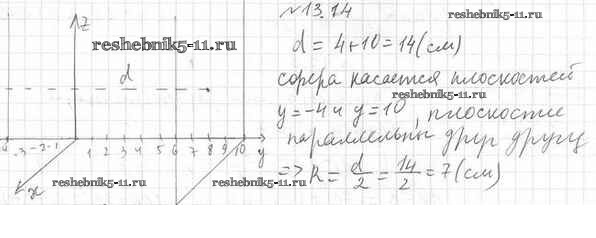 №13.14
reshebnik5-11.ru
z
reshebnik5-11.ru
d = 4+10 = 14 (см)
d
сфера касается плоскостей
reshebnik5-11.ru
y = -4 и y = 10, плоскостие
параллельны друг другу
4 -3 -2 -1 1 2 3 4 5 6 7 8 9 10 y
=> R = d/2 = 14/2 = 7 (см)
x
reshebnik5-11.ru
reshebnik5-11.ru